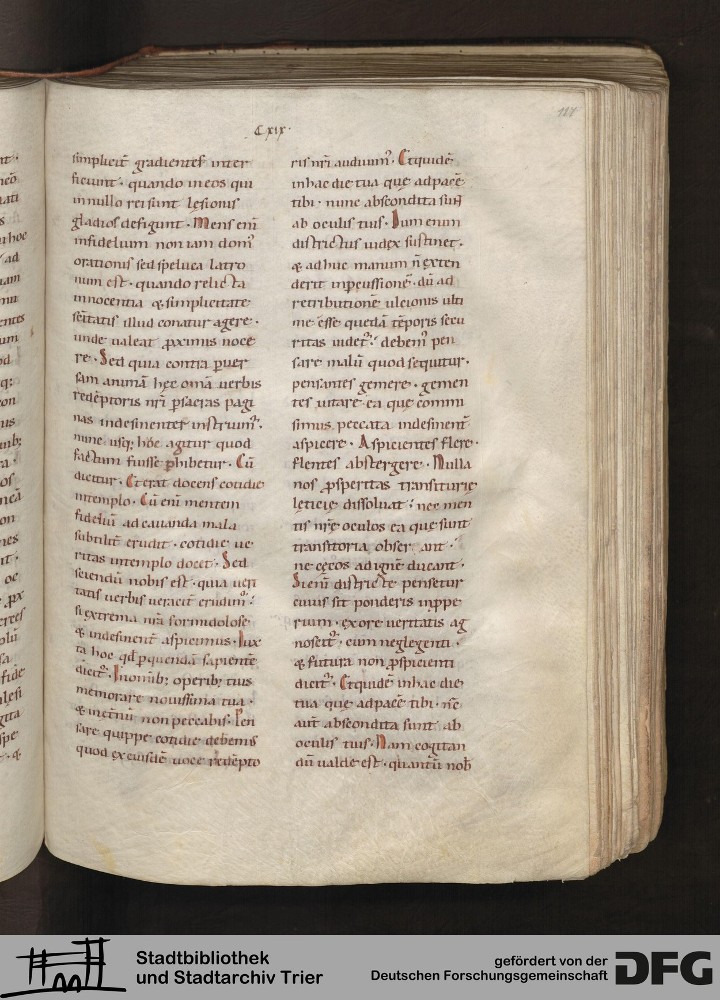 Cxix.
118
simplicit̄ gradientes inter
ficiunt. quando in eos qui
in nullo rei sunt lęsionis
gladios defigunt. Mens eni
infidelium non iam dom᷒
orationis sed spelunca latro
num est. quando relicta
innocentia & simplicitate
sēitatis illud conatur agere.
unde ualeat ꝓximis noce
re. Sed quia contra ꝑuer
sam animā hęc omīa uerbis
redēptoris nr̄i ꝑ sacras pagi
nas indesinenter instruim᷒.
nunc usq; hoc agitur quod
factum fuisse ꝑhibetur. Cū
dicitur. Et erat docens cotidie
in templo. Cū eni mentem
fideliū ad cauanda mala
subtilit̄ erudit. cotidie ue
ritas in templo docet. Sed
sciendū nobis est. quia ueri
tatis uerbis ueracit̄ erudim᷒.
si extrema nr̄a formidolose
& indesinent̄ aspicimus. Iux
ta hoc qđ ꝑ quendā sapientē
dicit᷒. In omīb; operib; tuis
memorare nouissima tua.
& in etn̄ū non peccabis. Pen
sare quippe cotidie debemus
quod ex eiusdē uoce redēpto
ris nr̄i audiuim᷒. Et quidē
in hac die tua quę ad pacē
tibi. nunc abscondita sunt̄
ab oculis tuis. Dum enim
districtus iudex sustinet.
& adhuc manum n̄ exten
derit in ꝑcussionē. dū ad
retributionē ulcionis ulti
mę esse quedā tēporis secu
ritas uidet᷒. debem᷒ pen
sare malū quod sequitur.
pensantes gemere. gemen
tes uitare. ea quę commi
simus peccata indesinent̄
aspicere. Aspicientes flere.
flentes abstergere. Nulla
nos ꝓsperitas transiturię
lęticię dissoluat. nec men
tis nr̄ę oculos ea que sunt
transitoria obser ant.
ne cęcos ad ignē ducant.
Si eni districte pensetur
cuius sit ponderis inꝓpe
rium. ex ore ueritatis ag
noscit᷒. cum neglegenti.
& futura non ꝓspicienti
dicit᷒. Et quidē in hac die
tua quę ad pacē tibi. nc̄
aut̄ abscondita sunt ab
oculis tuis. Nam cogitan
dū ualde est. quantū nob̄
Stadtbibliothek
und Stadtarchiv Trier
gefördert von der
Deutschen Forschungsgemeinschaft
DFG